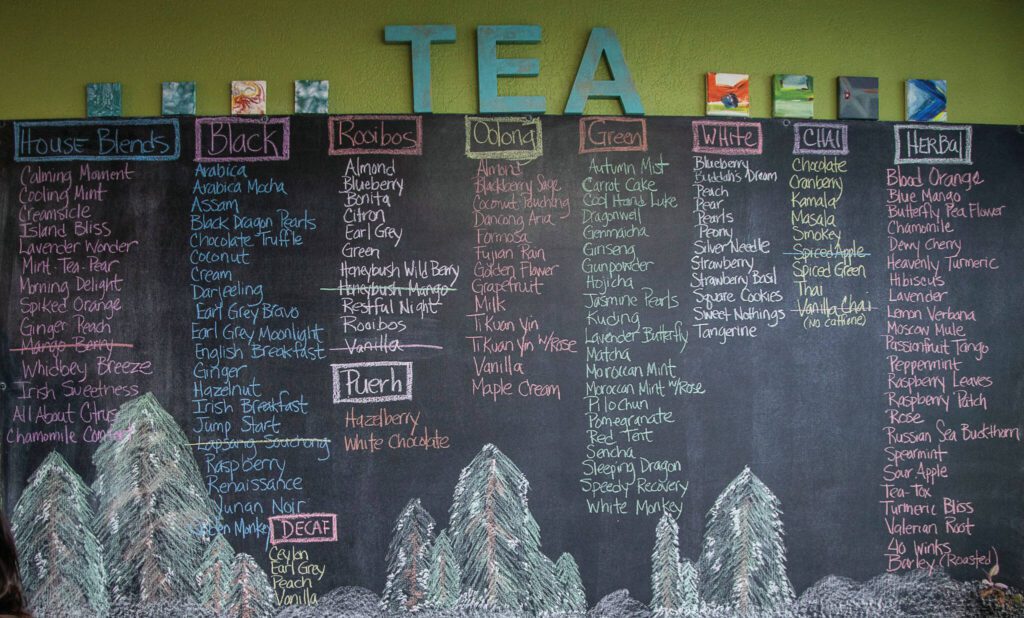 TEA
House Blends
Calming Moment
Cooling Mint
Creamsicle
Island Bliss
Lavender Wonder
Mint-Tea-Pear
Morning Delight
Spiked Orange
Ginger Peach
Mango Berry
Whidbey Breeze
Irish Sweetness
All About Citrus
Chamomile Comfort
Black
Arabica
Arabica Mocha
Assam
Black Dragon Pearls
Chocolate Truffle
Coconut
Cream
Darjeeling
Earl Grey Bravo
Earl Grey Moonlight
English Breakfast
Ginger
Hazelnut
Irish Breakfast
Jump Start
Lapsang Souchong
Raspberry
Renaissance
Yunan Noir
Monkey
DECAF
Ceylon
Earl Grey
Peach
Vanilla
Rooibos
Almond
Blueberry
Bonita
Citron
Earl Grey
Green
Honeybush Wild Berry
Honeybush Mango
Restful Night
Rooibos
Vanilla
Puerh
Hazelberry
White Chocolate
Oolong
Almond
Blackberry Sage
Coconut Pouchong
Dancong Aria
Formosa
Fujian Rain
Golden Flower
Grapefruit
Milk
Ti Kuan Yin
Ti Kuan Yin w/Rose
Vanilla
Maple Cream
Green
Autumn Mist
Carrot Cake
Cool Hand Luke
Dragonwell
Genmaicha
Ginseng
Gunpowder
Hojicha
Jasmine Pearls
Kuding
Lavender Butterfly
Matcha
Moroccan Mint
Moroccan Mint w/Rose
Pi Lo Chun
Pomegranate
Red Tent
Sencha
Sleeping Dragon
Speedy Recovery
White Monkey
White
Blueberry
Buddah's Dream
Peach
Pear
Pearls
Peony
Silver Needle
Strawberry
Strawberry Basil
Square Cookies
Sweet Nothings
Tangerine
CHAI
Chocolate
Cranberry
Kamala
Masala
Smokey
Spiced Apple
Spiced Green
Thai
Vanilla Chai
(No caffiene)
HERBal
Blood Orange
Blue Mango
Butterfly Pea Flower
Chamomile
Dewy Cherry
Heavenly Turmeric
Hibiscus
Lavender
Lemon Verbana
Moscow Mule
Passionfruit Tango
Peppermint
Raspberry Leaves
Raspberry Patch
Rose
Russian Sea Buckthorn
Spearmint
Sour Apple
Tea-Tox
Turmeric Bliss
Valerian Root
40 Winks
Barley (Roasted)